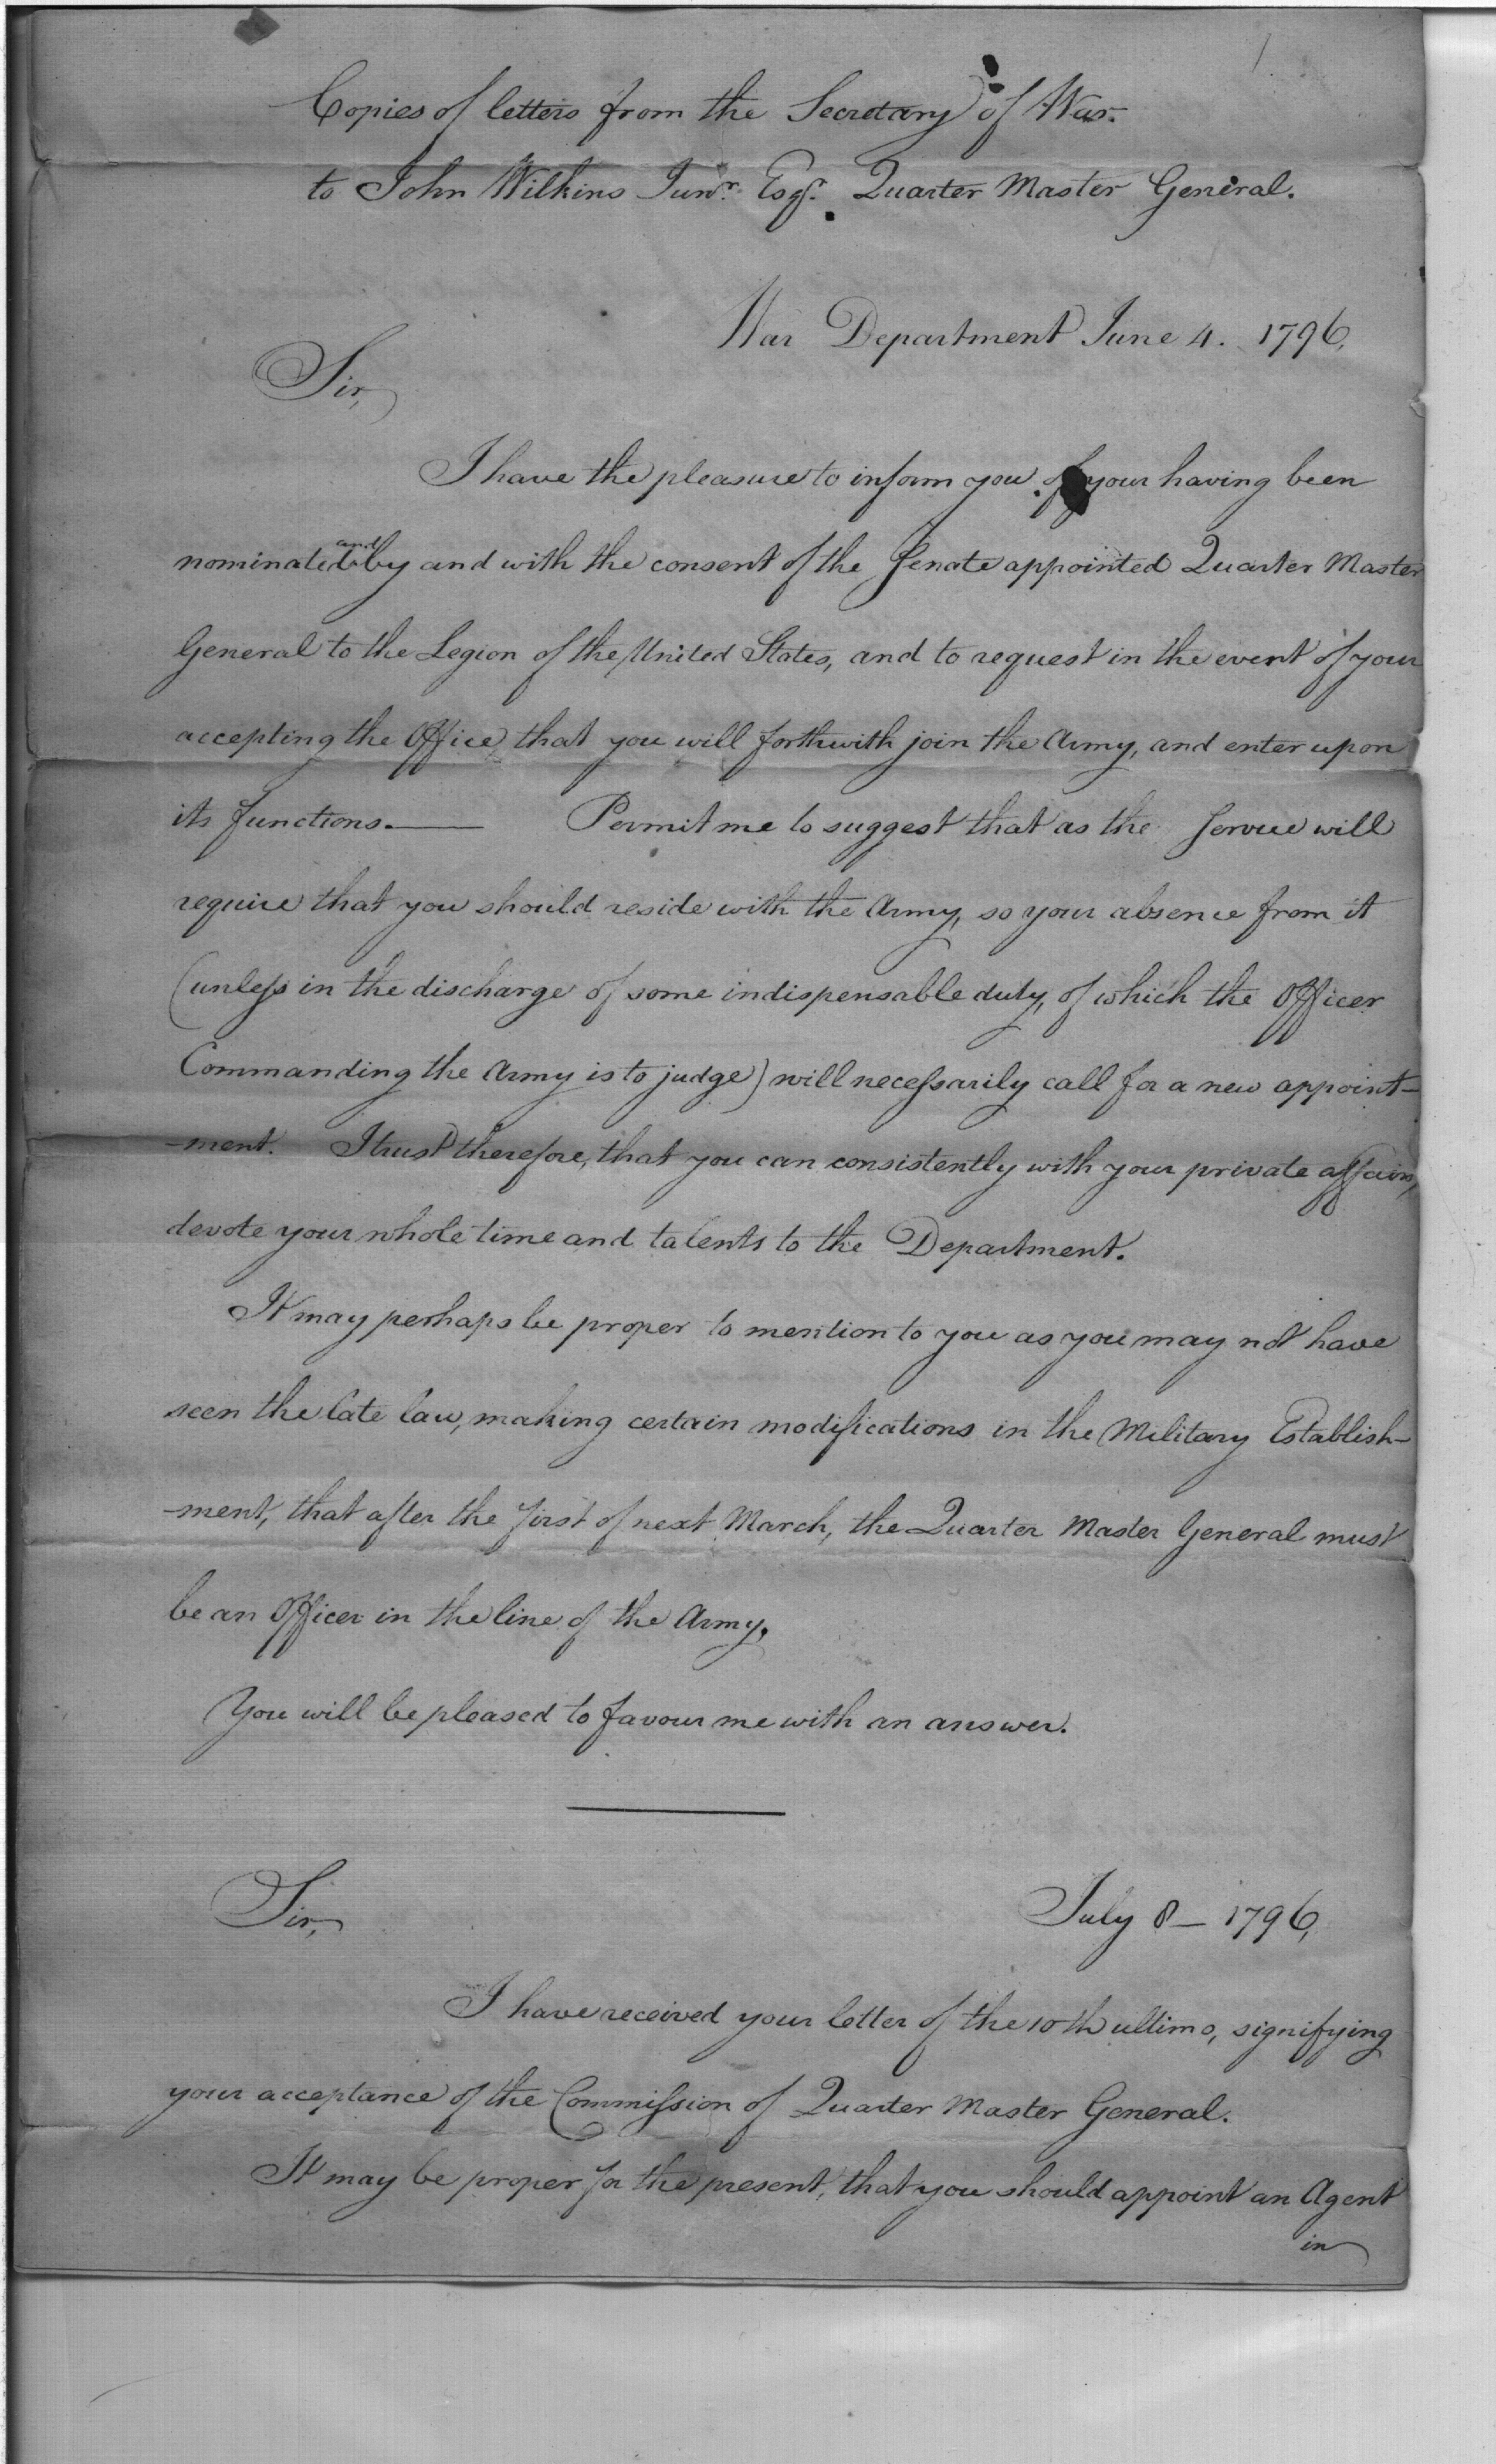 Copies of letters from the Secretary of War.
to John Wilkins Junr. Esqr. Quarter Master General.
War Department June 4. 1796.
Sir,
I have the pleasure to inform you of your having been
nominated and by and with the consent of the Senate appointed Quarter Master
General to the Legion of the United States, and to request in the event of your
accepting the Office, that you will forthwith join the Army, and enter upon
its functions.— Permit me to suggest that as the Service will
require that you should reside with the Army, so your absence from it
(unless in the discharge of some indispensable duty, of which the Officer
Commanding the Army is to judge) will necessarily call for a new appoint-
-ment. I trust therefore, that you can consistently with your private affairs,
devote your whole time and talents to the Department.
It may perhaps be proper to mention to you as you may not have
seen the late law, making certain modifications in the Military Establish-
-ment, that after the first of next March, the Quarter Master General must
be an Officer in the line of the Army.
You will be pleased to favour me with an answer.
Sir, July 8— 1796,
I have received your letter of the 10th ultimo, signifying
your acceptance of the Commission of Quarter Master General.
It may be proper for the present, that you should appoint an Agent
in